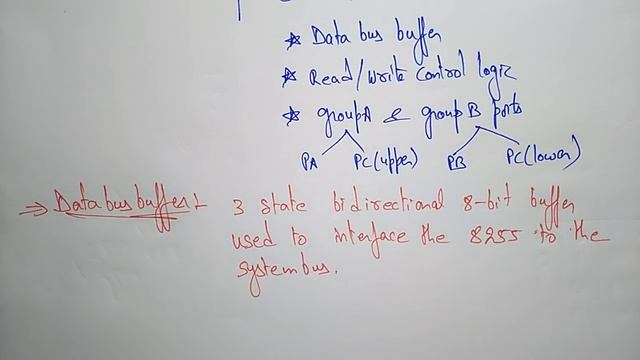 * Data bus buffer
* Read/Write control logic
* group A & group B ports
PA PC(upper) PB PC(lower)
⇒ Data bus buffer :- 3 state bidirectional 8-bit buffer
used to interface the 8255 to the
system bus.